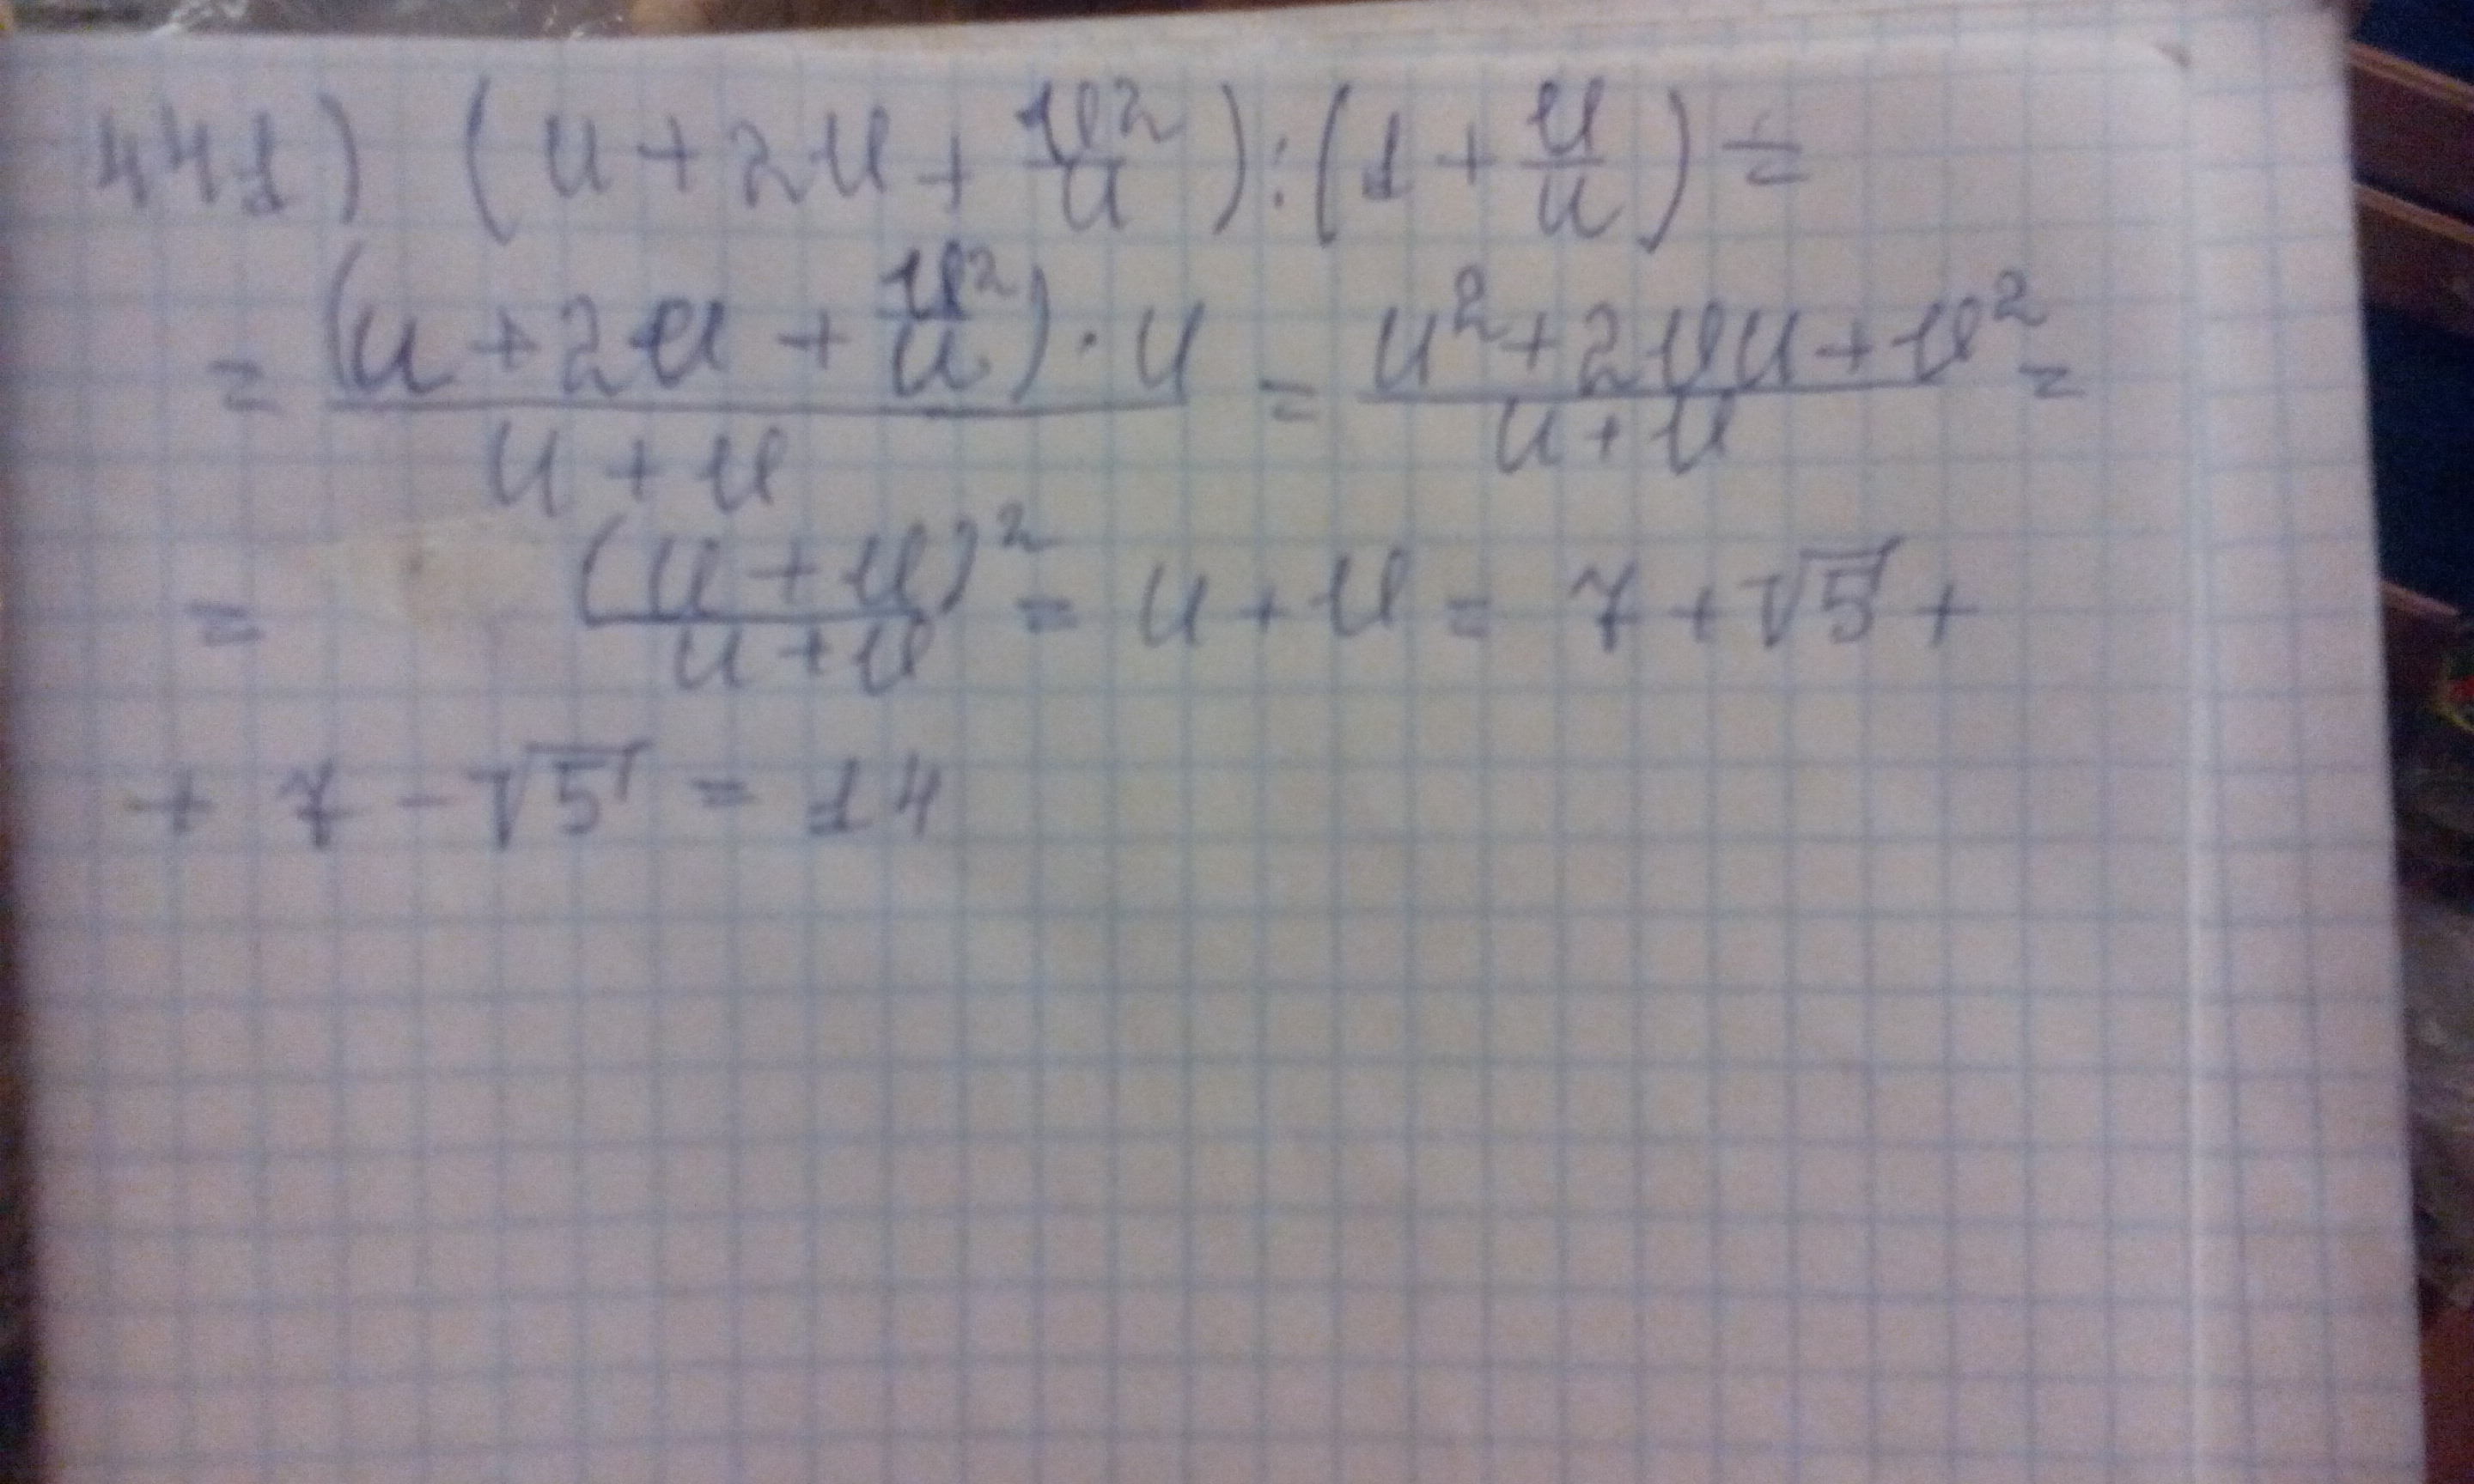 441) (u + 2v + v²/u) : (1 + v/u) =
= ((u + 2v + v²/u) · u)/(u + v) = (u² + 2vu + v²)/(u + v) =
= (u + v)²/(u + v) = u + v = 7 + √5 +
+ 7 - √5 = 14